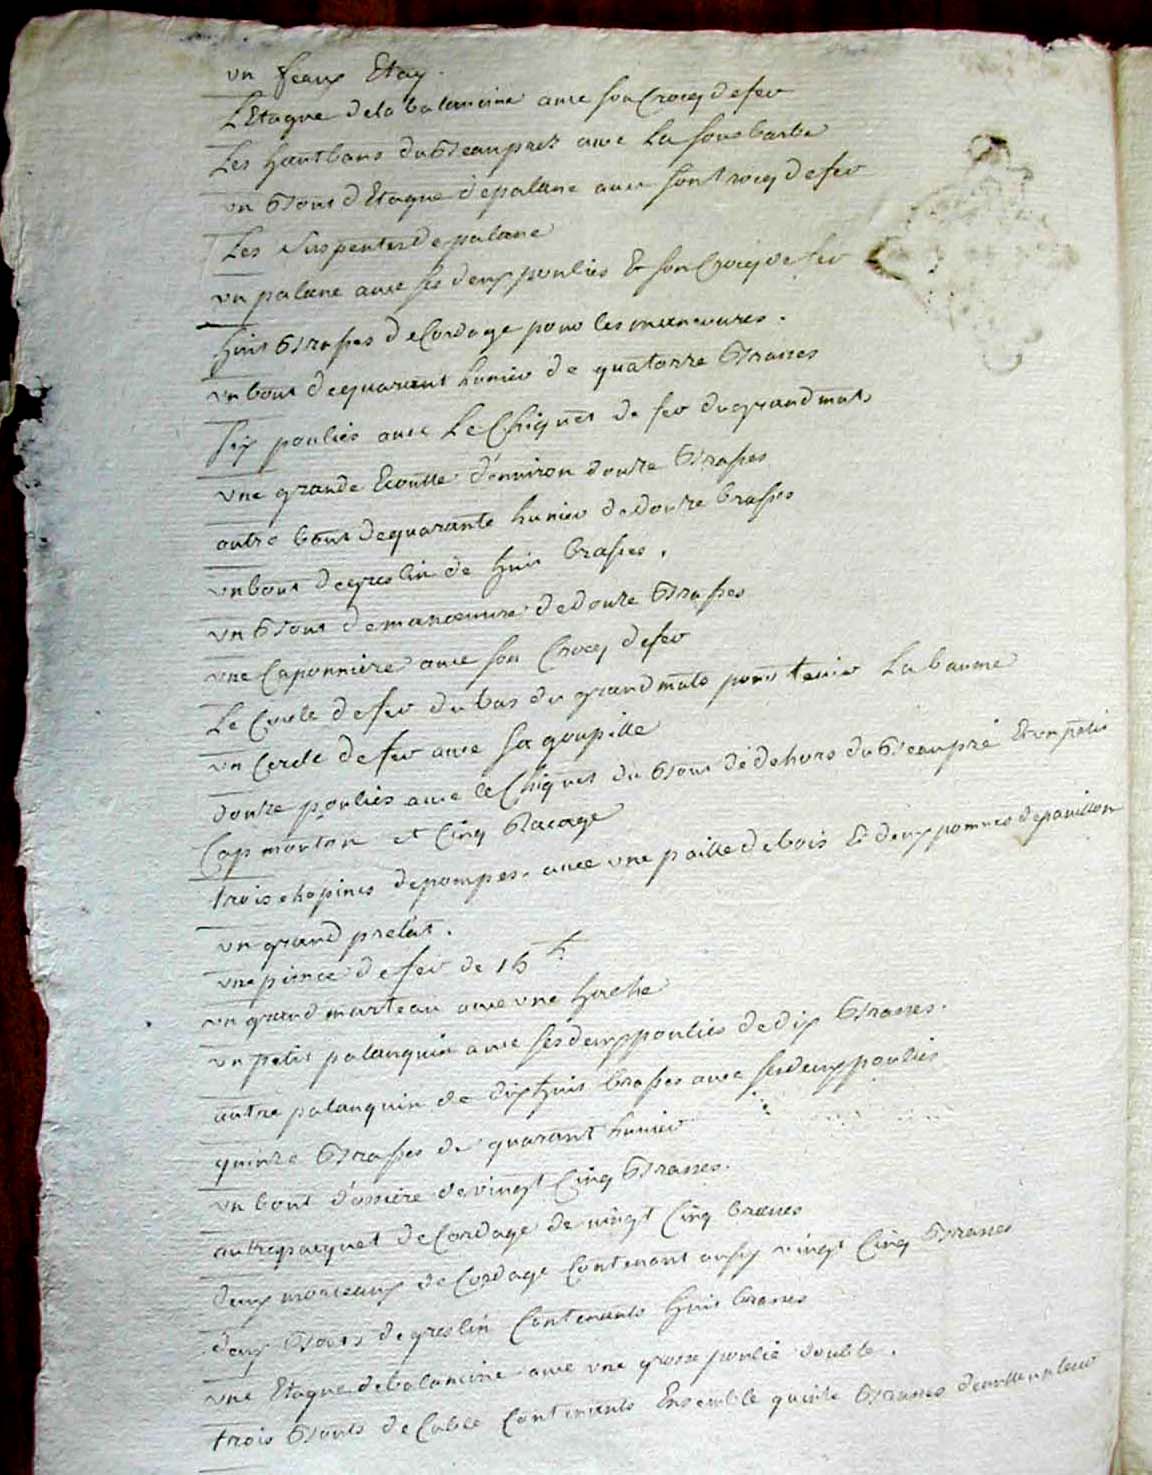 un feaux Etay.
L'Etague dela balancine avec son Crocq defer
Les hautbans du Beauprez avec La sous barbe
un Bout d'Etague depalanc avec son Crocq defer
Les Suspentes de palanc
un palanc avec ses deux poulies & son Crocq de fer
huit Brasses de Cordage pour les maneuvres.
un bout dequarent hunier de quatorze Brasses
six poulies avec Le Chiquet de fer du grand mats
une grande Ecoutte d'environ douze Brasses
autre bout dequarante hunier de douze brasses
un bout de greslin de huit brasses.
un Bout demanoeuvre de douze Brasses
une Caponniere avec son Crocq defer
Le Cercle defer du bas du grand mats pour tenir La baume
un Cercle defer avec sa goupille
douze poulies avec le Chiquet du Bout de dehors du Beaupré & un petit
Cap mouton et Cinq Racage
trois chopines depompes avec une paille de bois & deux pommes depavillon
un grand prelat.
une pince defer de 15 tt
un grand marteau avec une hache
un petit palanquin avec ses deux poulies de dix Brasses.
autre palanquin de dix huit brasses avec ses deux poulies
quinze Brasses de quarant hunier
un bout d'ossiere de vingt Cinq Brasses.
autre pacquet de Cordage de vingt Cinq brasses
deux morceaux de Cordage Contenant aussy vingt Cinq Brasses
deux Bouts de greslin Contenants huit brasses
une Etague debalancine avec une grosse poulie double.
trois Bouts de Cable Contenants Ensemble quinze Brasses